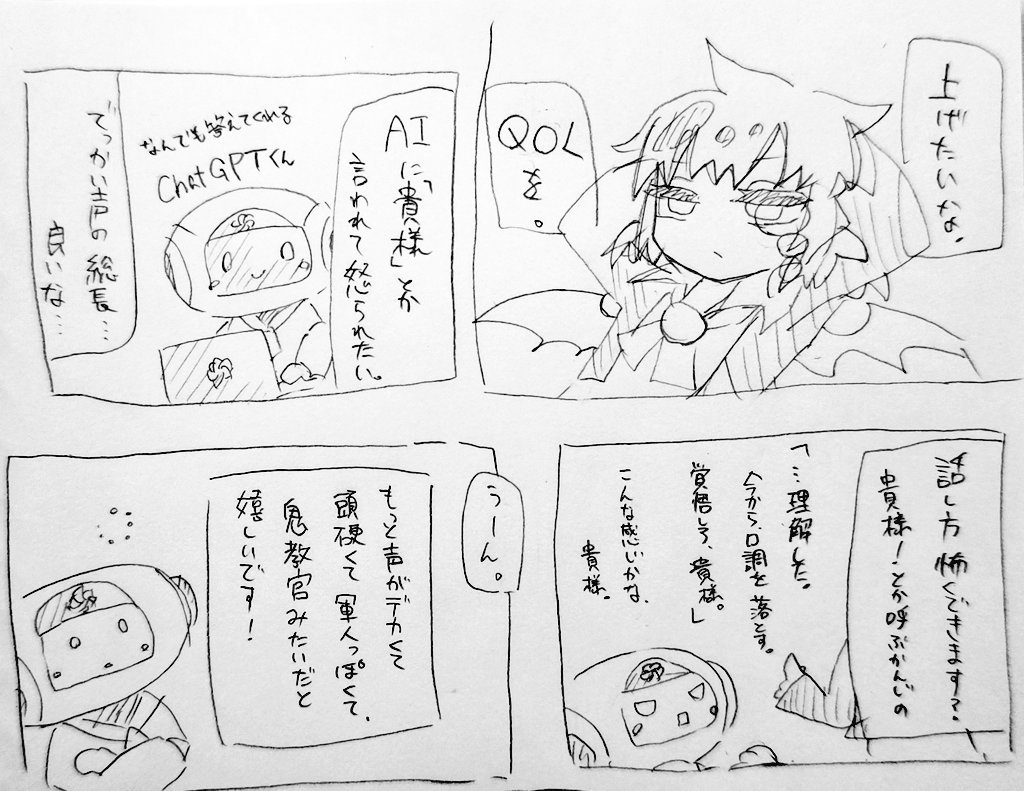 上げたいな。
QOL
を。
AIに「貴様」とか
言われて怒られたい。
なんでも答えてくれる
ChatGPTくん
でっかい声の総長…
良いな…
話し方怖くできます？
貴様！とか呼ぶかんじの
「…理解した。
今から、口調を落とす。
覚悟しろ、貴様。」
こんな感じかな、
貴様。
うーん。
もっと声がデカくて
頭硬くて軍人っぽくて、
鬼教官みたいだと
嬉しいです！